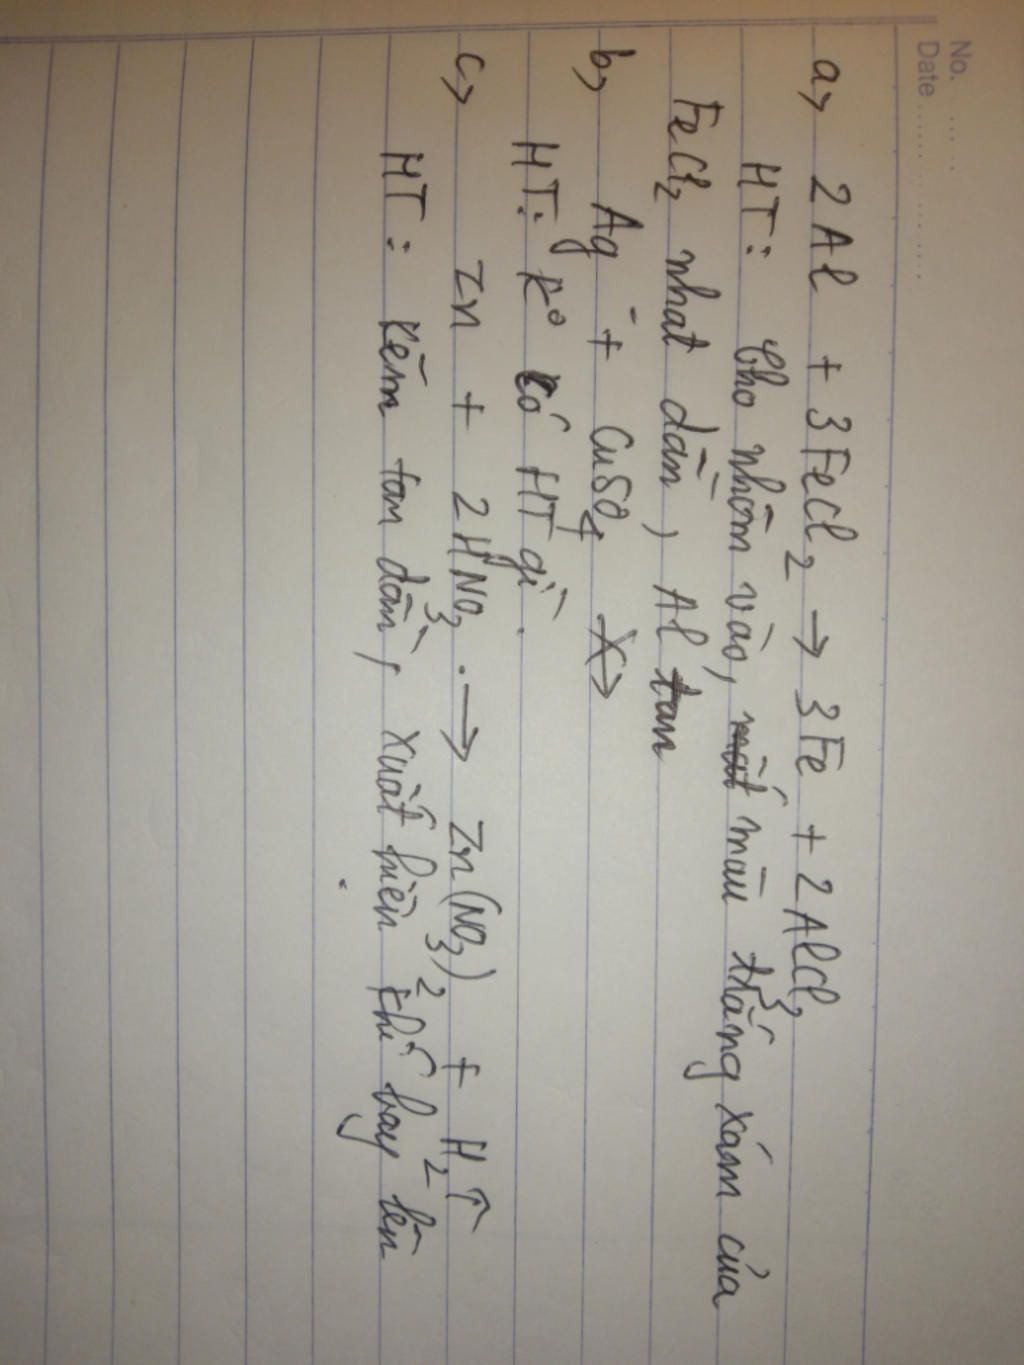 No. .... ..
Date ..... .. ... ... ....
a> 2Al + 3FeCl2 → 3Fe + 2AlCl3
HT: Cho nhôm vào, mất màu trắng xám của
FeCl2 nhat dần, Al tan
b> Ag + CuSO4 X→
HT: Ko có HT gì.
c> Zn + 2HNO3 .→ Zn(NO3)2 + H2↑
HT: Kẽm tan dần, xuất hiện khí bay lên